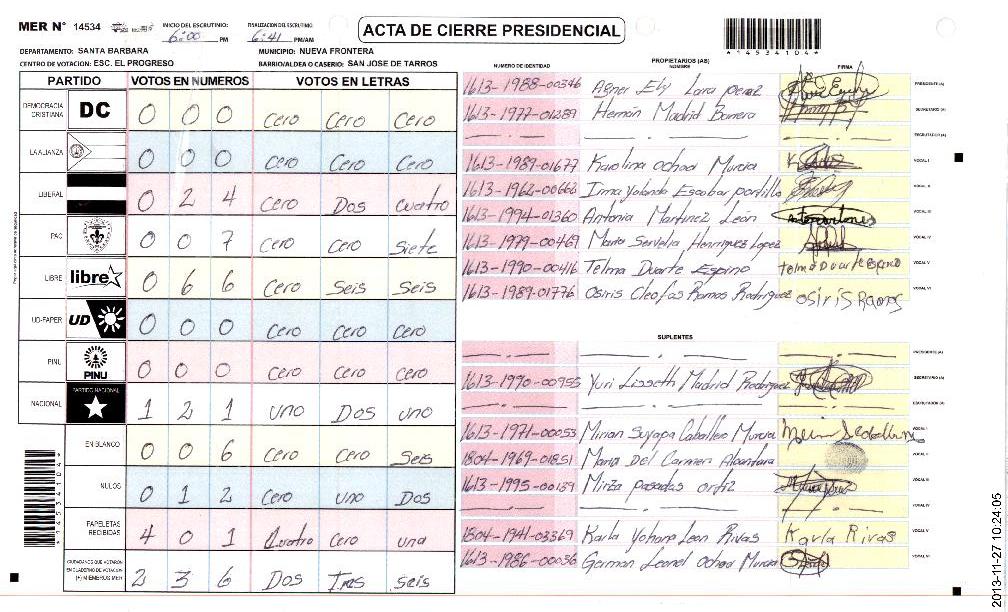 MER N° 14534
INICIO DEL ESCRUTINIO: 6:00 PM
FINALIZACION DEL ESCRUTINIO: 6:41 PM/AM
ACTA DE CIERRE PRESIDENCIAL
*14534104*
DEPARTAMENTO: SANTA BARBARA MUNICIPIO: NUEVA FRONTERA
CENTRO DE VOTACION: ESC. EL PROGRESO BARRIO/ALDEA O CASERIO: SAN JOSE DE TARROS
PARTIDO VOTOS EN NUMEROS VOTOS EN LETRAS
DEMOCRACIA CRISTIANA DC 0 0 0 Cero Cero Cero
LA ALIANZA 0 0 0 Cero Cero Cero
LIBERAL 0 2 4 Cero Dos cuatro
PAC 0 0 7 Cero Cero Siete
LIBRE libre 0 6 6 Cero Seis Seis
UD-FAPER UD 0 0 0 Cero Cero Cero
PINU PINU 0 0 0 Cero Cero Cero
NACIONAL PARTIDO NACIONAL 1 2 1 uno Dos uno
EN BLANCO 0 0 6 Cero Cero Seis
NULOS 0 1 2 Cero uno Dos
PAPELETAS RECIBIDAS 4 0 1 Cuatro Cero una
CIUDADANOS QUE VOTARON EN CUADERNO DE VOTACION (+) MIEMBROS MER 2 3 6 Dos Tres seis
*14534104*
NUMERO DE IDENTIDAD PROPIETARIOS (AS) NOMBRE FIRMA
1613-1988-00346 Agner Ely Lara perez PRESIDENTE (A)
1613-1977-01289 Hernán Madrid Barrera SECRETARIO (A)
ESCRUTADOR (A)
1613-1989-01677 Karolina ochoa Murcia VOCAL I
1613-1962-00668 Irma Yolanda Escobar portillo VOCAL II
1613-1994-01360 Antonia Martinez León VOCAL III
1613-1979-00469 Maria Servelia Henriquez Lopez VOCAL IV
1613-1990-00416 Telma Duarte Espino telma Duarte Espino VOCAL V
1613-1989-01776 Osiris Cleofas Ramos Rodriguez osiris Ramos VOCAL VI
SUPLENTES
PRESIDENTE (A)
1613-1990-00955 Yuri Lisseth Madrid Rodriguez SECRETARIO (A)
ESCRUTADOR (A)
1613-1971-00053 Mirian Suyapa Caballero Murcia VOCAL I
1804-1969-01851 Maria Del Carmen Alcantara VOCAL II
1613-1995-00139 Mirza pasadas ortiz VOCAL III
VOCAL IV
1804-1941-03369 Karla Yohana Leon Rivas Karla Rivas VOCAL V
1613-1986-00036 German Leonel Ochoa Murcia VOCAL VI
2013-11-27 10:24:05